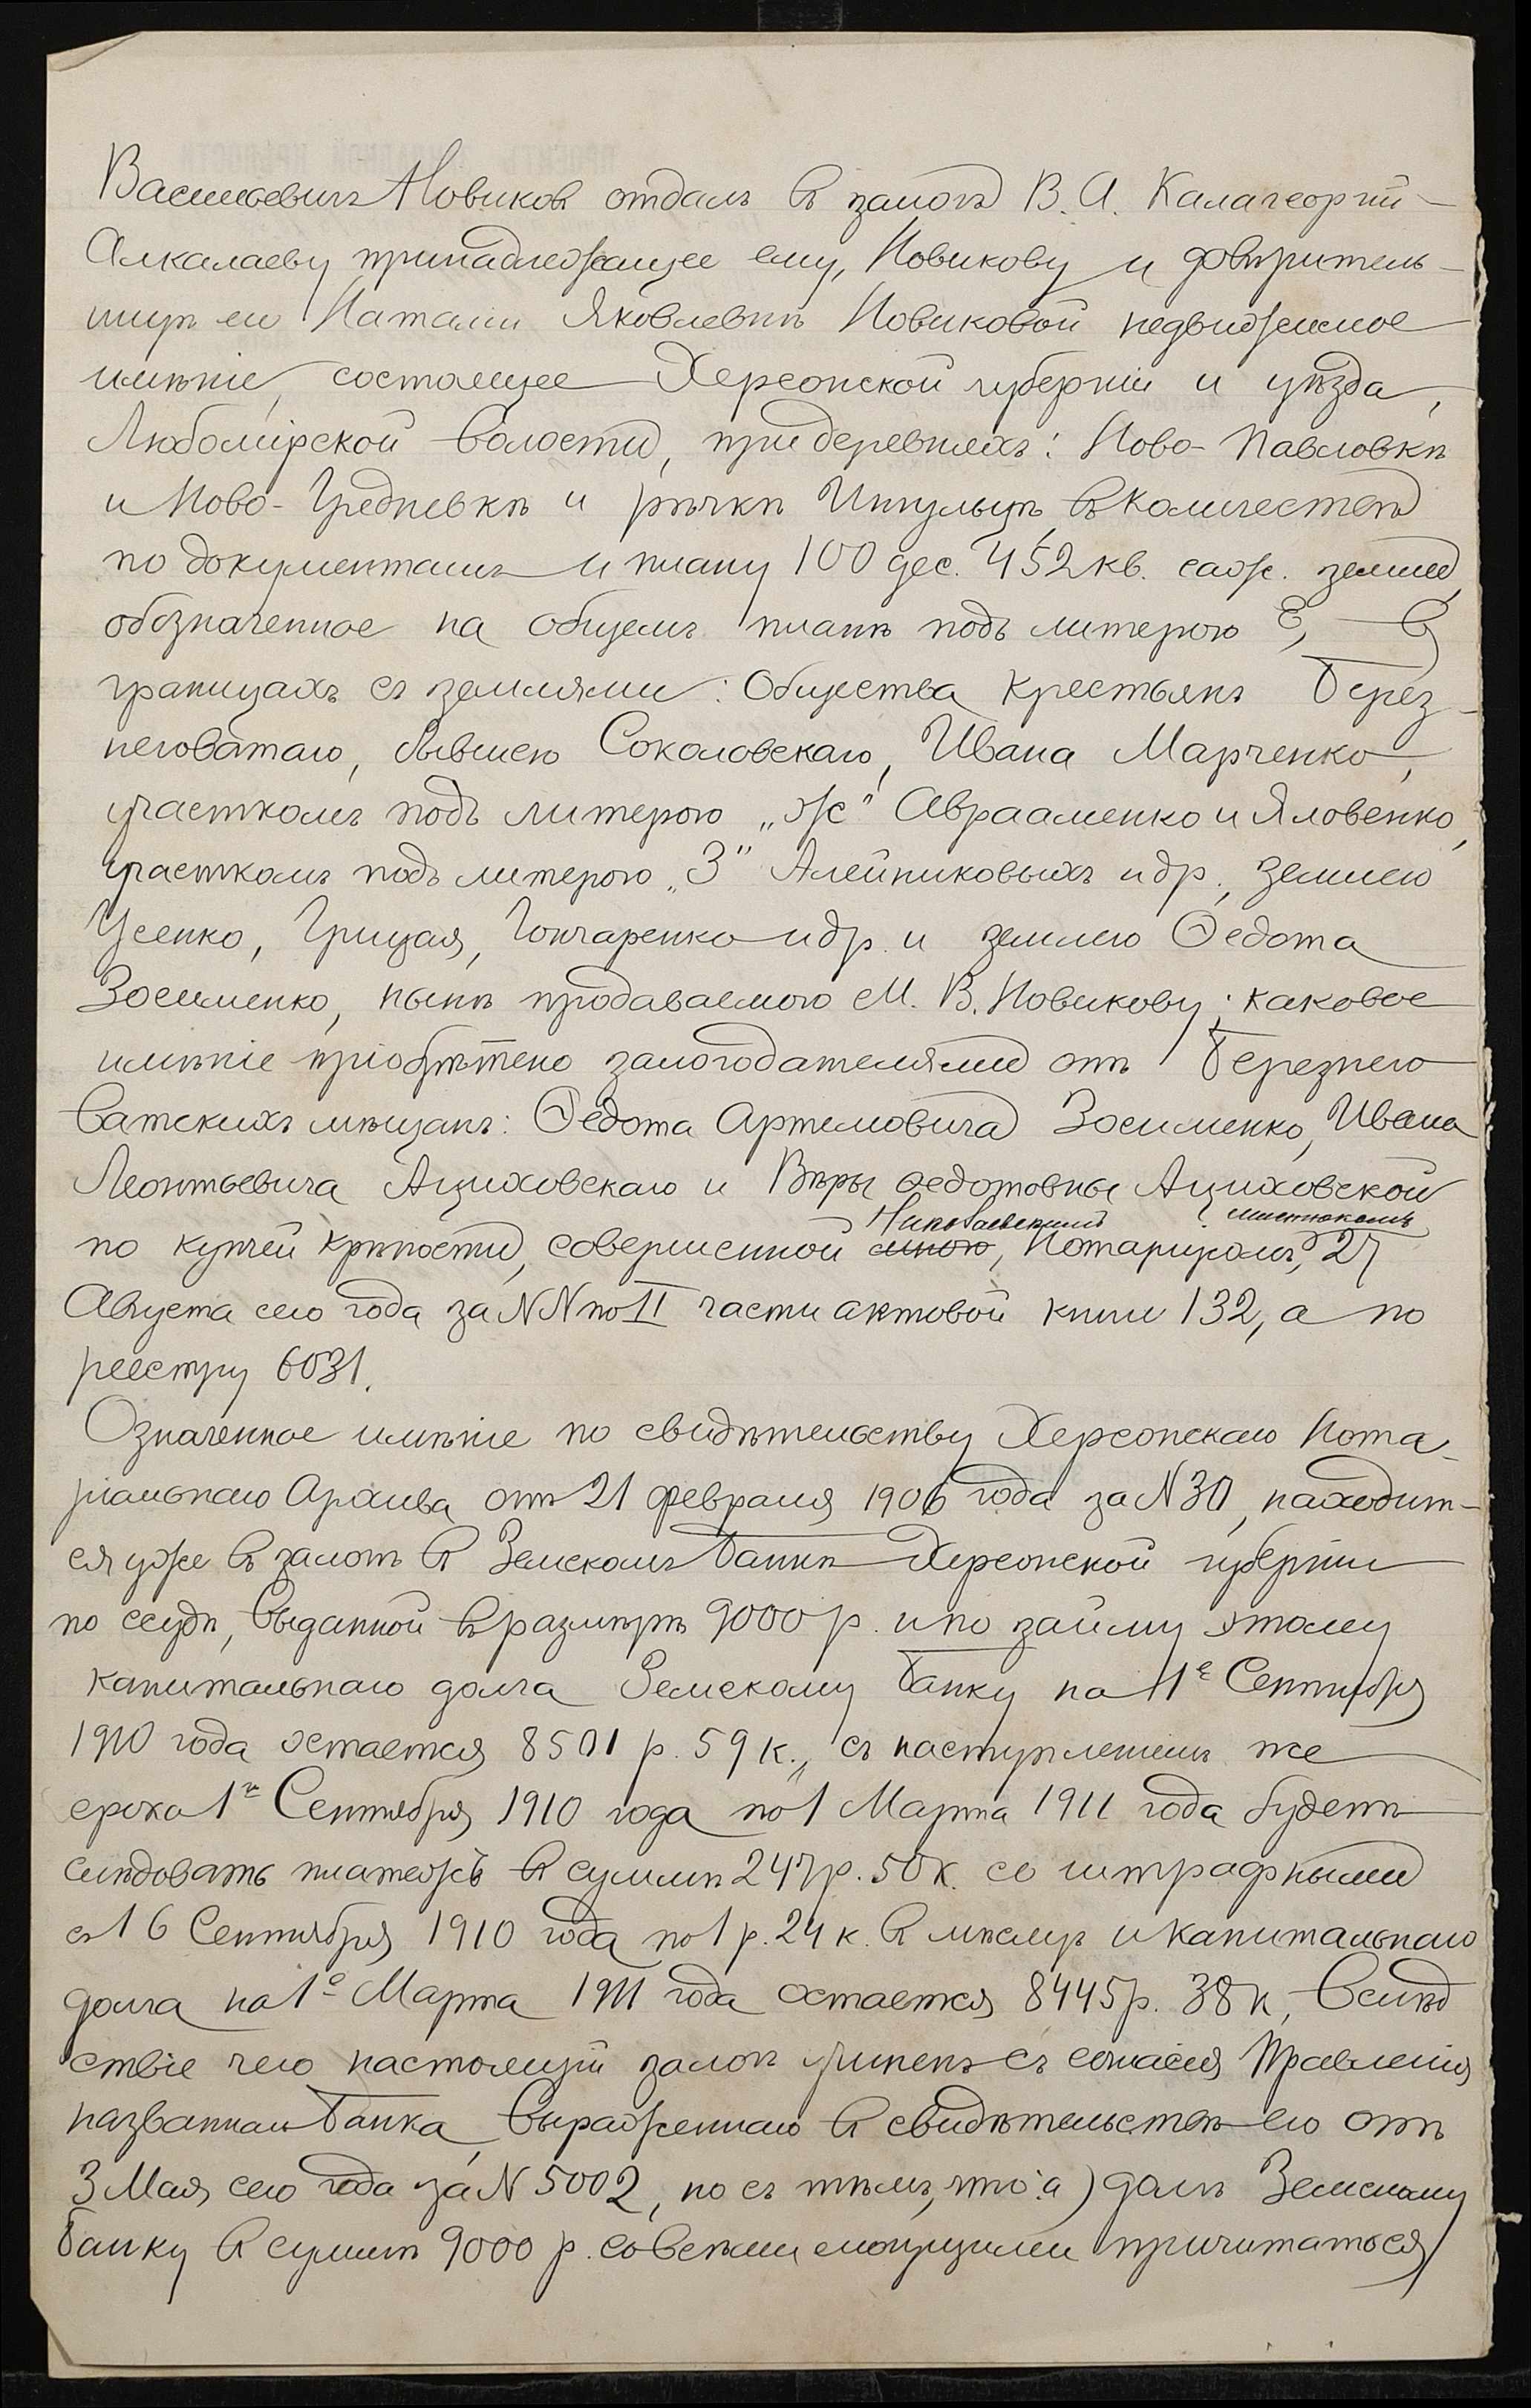 Васильевичъ Новиковъ отдалъ въ залогъ В. А. Калагеоргій-
Алкалаеву принадлежащее ему, Новикову и довѣритель-
ницѣ его Наталіи Яковлевнѣ Новиковой недвижимое
имѣніе, состоящее Херсонской губерніи и уѣзда,
Любомірской волости, при деревняхъ: Ново-Павловкѣ
и Ново-Гредневкѣ и рѣчкѣ Ингульцѣ, въ количествѣ
по документамъ и плану 100 дес. 452 кв. саж. земли,
обозначенное на общемъ планѣ подъ литерою Е, въ
границахъ съ землями: Общества крестьянъ Берез-
неговатаго, бывшею Соколовскаго, Ивана Марченко,
участкомъ подъ литерою „Ж" Авраменко и Яловенко,
участкомъ подъ литерою „З" Алейниковыхъ и др., землею
Усенко, Грицая, Гончаренко и др. и землею Ѳедота
Зосименко, нынѣ продаваемою М. В. Новикову; каковое
имѣніе пріобрѣтено залогодателями отъ Березнего
ватскихъ мѣщанъ: Ѳедота Артемовича Зосименко, Ивана
Леонтьевича Ациховскаго и Вѣры Ѳедотовны Ациховской
Николаевскимъ
по купчей крѣпости, совершенной мною, Нотаріусомъ, 27
Августа сего года за NN по II части актовой книги 132, а по
реестру 6031.
Означенное имѣніе по свидѣтельству Херсонскаго Нота-
ріальнаго Архива отъ 21 февраля 1906 года за N 30, находит-
ся уже въ залогѣ въ Земскомъ Банкѣ Херсонской губерніи
по ссудѣ, выданной въ размѣрѣ 9000 р. и по займу этому
капитальнаго долга Земскому Банку на 1е Сентября
1910 года остается 8501 р. 59 к., съ наступленіемъ же
срока 1го Сентября 1910 года по 1 Марта 1911 года будетъ
слѣдовать платежъ въ суммѣ 247 р. 50 к. со штрафными
съ 16 Сентября 1910 года по 1 р. 24 к. въ мѣсяцъ и капитальнаго
долга на 1е Марта 1911 года остается 8445 р. 38 к, Вслѣд
ствіе чего настоящій залогъ учиненъ съ согласія Правленія
названнаго Банка, выраженнаго въ свидѣтельствѣ его отъ
3 Мая сего года за N 5002, но съ тѣмъ, что: а) долгъ Земскому
Банку въ суммѣ 9000 р. со всѣми могущими причитаться